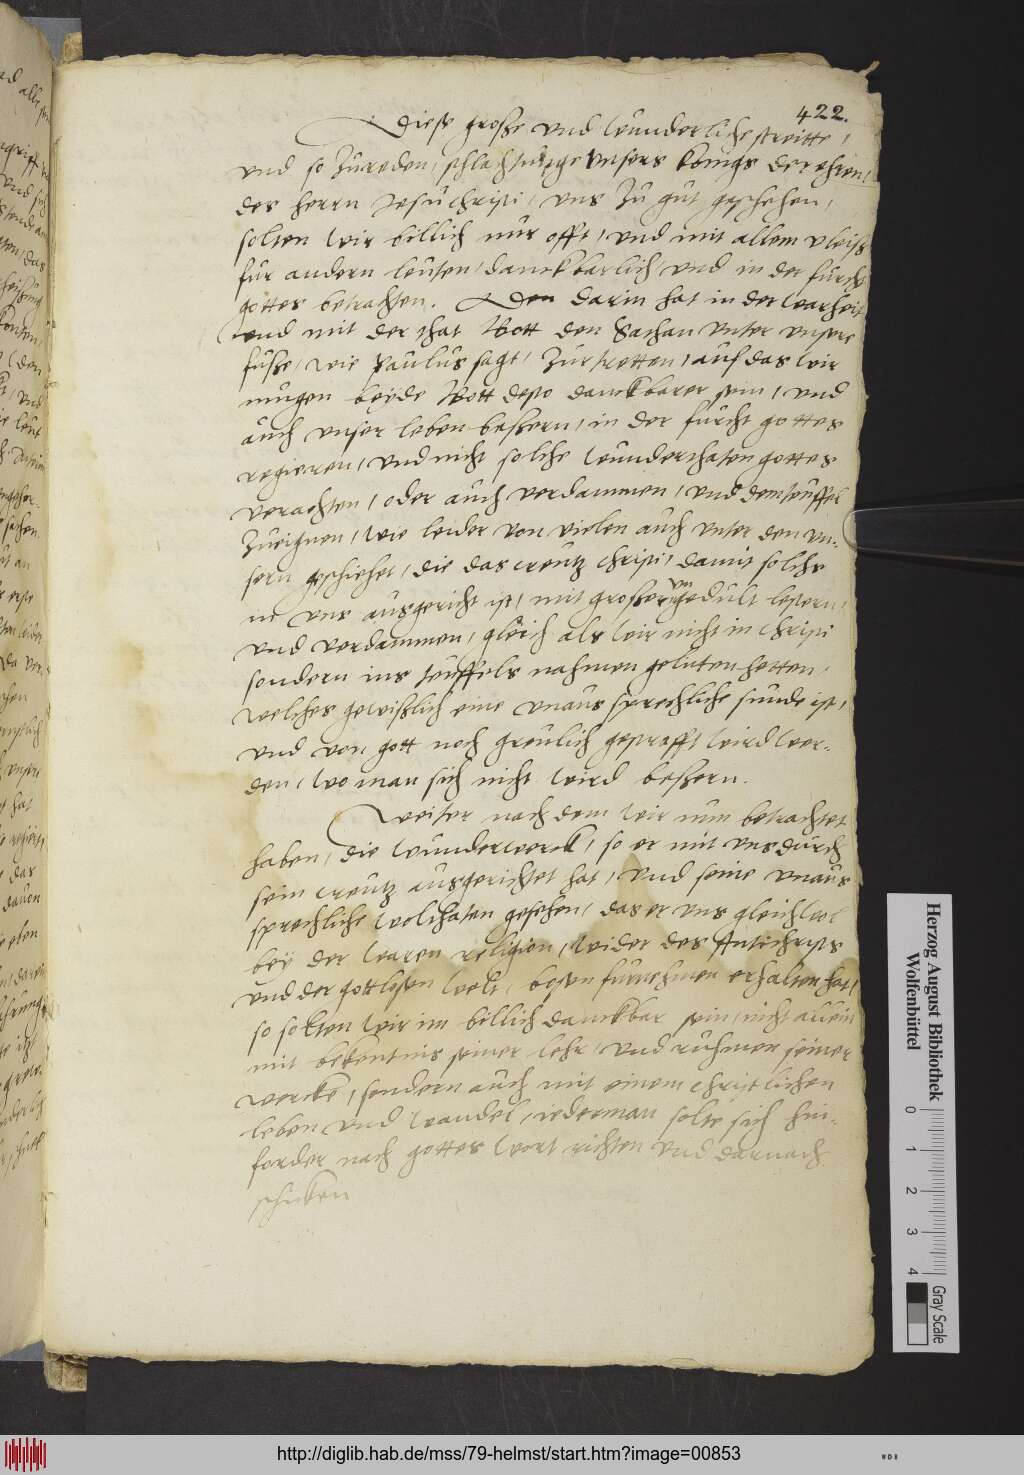 422.
Diese große vnd wunderliche streitte,
vnd so zureden, schlachtuge vnsers königs der ehren,
des herrn Jesu christi, vns zu gut geschehen,
solten wir billich nur offt, vnd mit allem vleiß
für andern leuten, danckbarlich, vnd in der furcht
gottes betrachten. Den darin hat in der warheit
vnd mit der that Gott den Sathan vnter vnsere
fuße, wie Paulus sagt, zurtretten, auf das wir
mugen beyde Gott desto danckbarer sein, vnd
auch vnser leben beßern, in der furcht gottes
regieren, vnd nicht solche wunderthaten gottes
verachten, oder auch verdammen, vnd dem teuffel
zueignen, wie leider von vielen auch vnter den vn-
sern geschiehet, die das creutz christi, damit solchs
in vns ausgericht ist, mit großer vngedult lestern,
vnd verdammen, gleich als wir nicht in christi
sondern ins teuffels nahmen geliten hetten,
welches gewißlich eine vnaus sprechliche sunde ist,
vnd von gott noch greulich gestrafft wird wer-
den, wo man sich nicht wird beßern.
Weiter nach dem wir nun betrachtet
haben, die wunderwerck, so er mit vns durch
sein creutz ausgerichtet hat, vnd seine vnaus
sprechliche wolthaten gesehen, das er vns gleichwol
bey der waren religion, wider des Antichrists
vnd der gottlosen welt, bosen furnehmen erhalten hat,
so solten wir im billich danckbar sein, nicht allein
mit bekentnis seiner lehr, vnd ruhmen seiner
wercke, sondern auch mit einem christlichen
leben vnd wandel, iederman solte sich hin-
forder nach gottes wort richten vnd darnach
schicken
Herzog August Bibliothek
Wolfenbüttel
0 1 2 3 4
Gray Scale
http://diglib.hab.de/mss/79-helmst/start.htm?image=00853